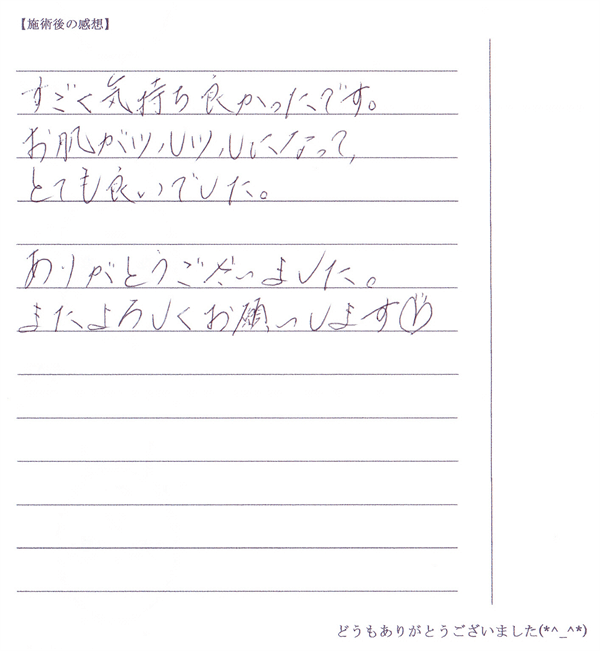 【施術後の感想】
すごく気持ち良かったです。
お肌がツルツルになって、
とても良いでした。
ありがとうございました。
またよろしくお願いします
どうもありがとうございました(*^_^*)